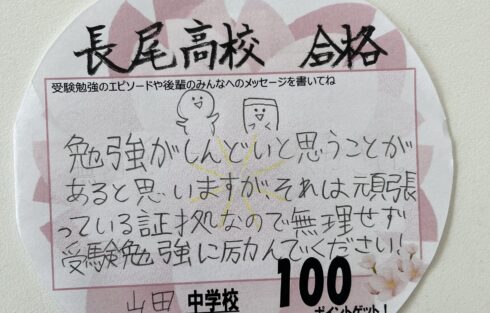 長尾高校 合格
受験勉強のエピソードや後輩のみんなへのメッセージを書いてね
勉強がしんどいと思うことが
あると思いますが、それは頑張
っている証拠なので無理せず
受験勉強に励んでください!
山田 中学校
100
ポイントゲット!